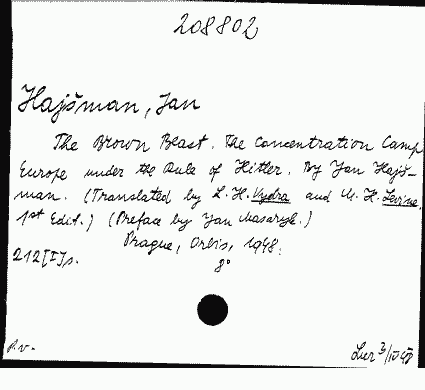 208802
Hajšman, Jan
The Brown Beast. The Concentration Camp
Europe under the Rule of Hitler. By Jan Hajš-
man. (Translated by L. H. Vydra and M. H. Levine.
1st Edit.) (Preface by Jan Masaryk.)
Prague, Orbis, 1948.
212[I]s. 8°
P.v.